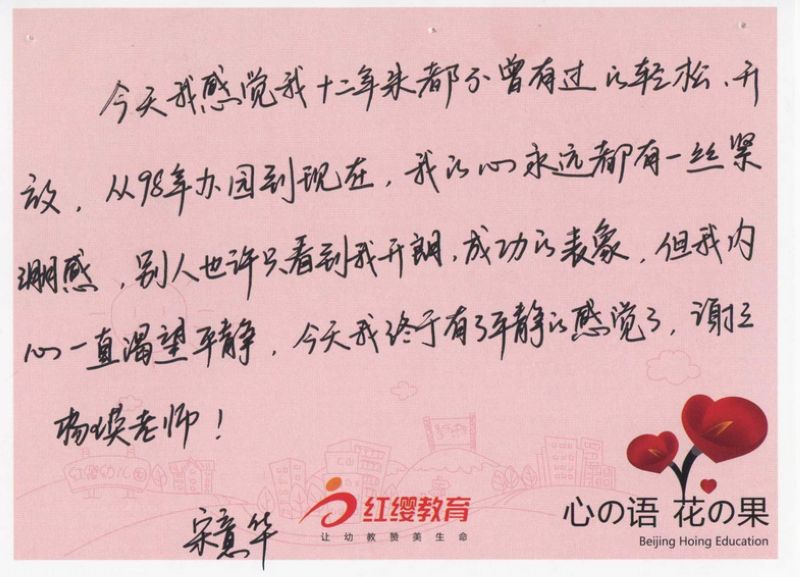 今天我感觉我十二年来都不曾有过的轻松、开
放，从98年办园到现在，我的心永远都有一丝紧
绷感，别人也许只看到我开朗，成功的表象，但我内
心一直渴望平静，今天我终于有了平静的感觉了，谢谢
杨瑛老师！
宋意华
红缨教育
让幼教赞美生命
心の语 花の果
Beijing Hoing Education